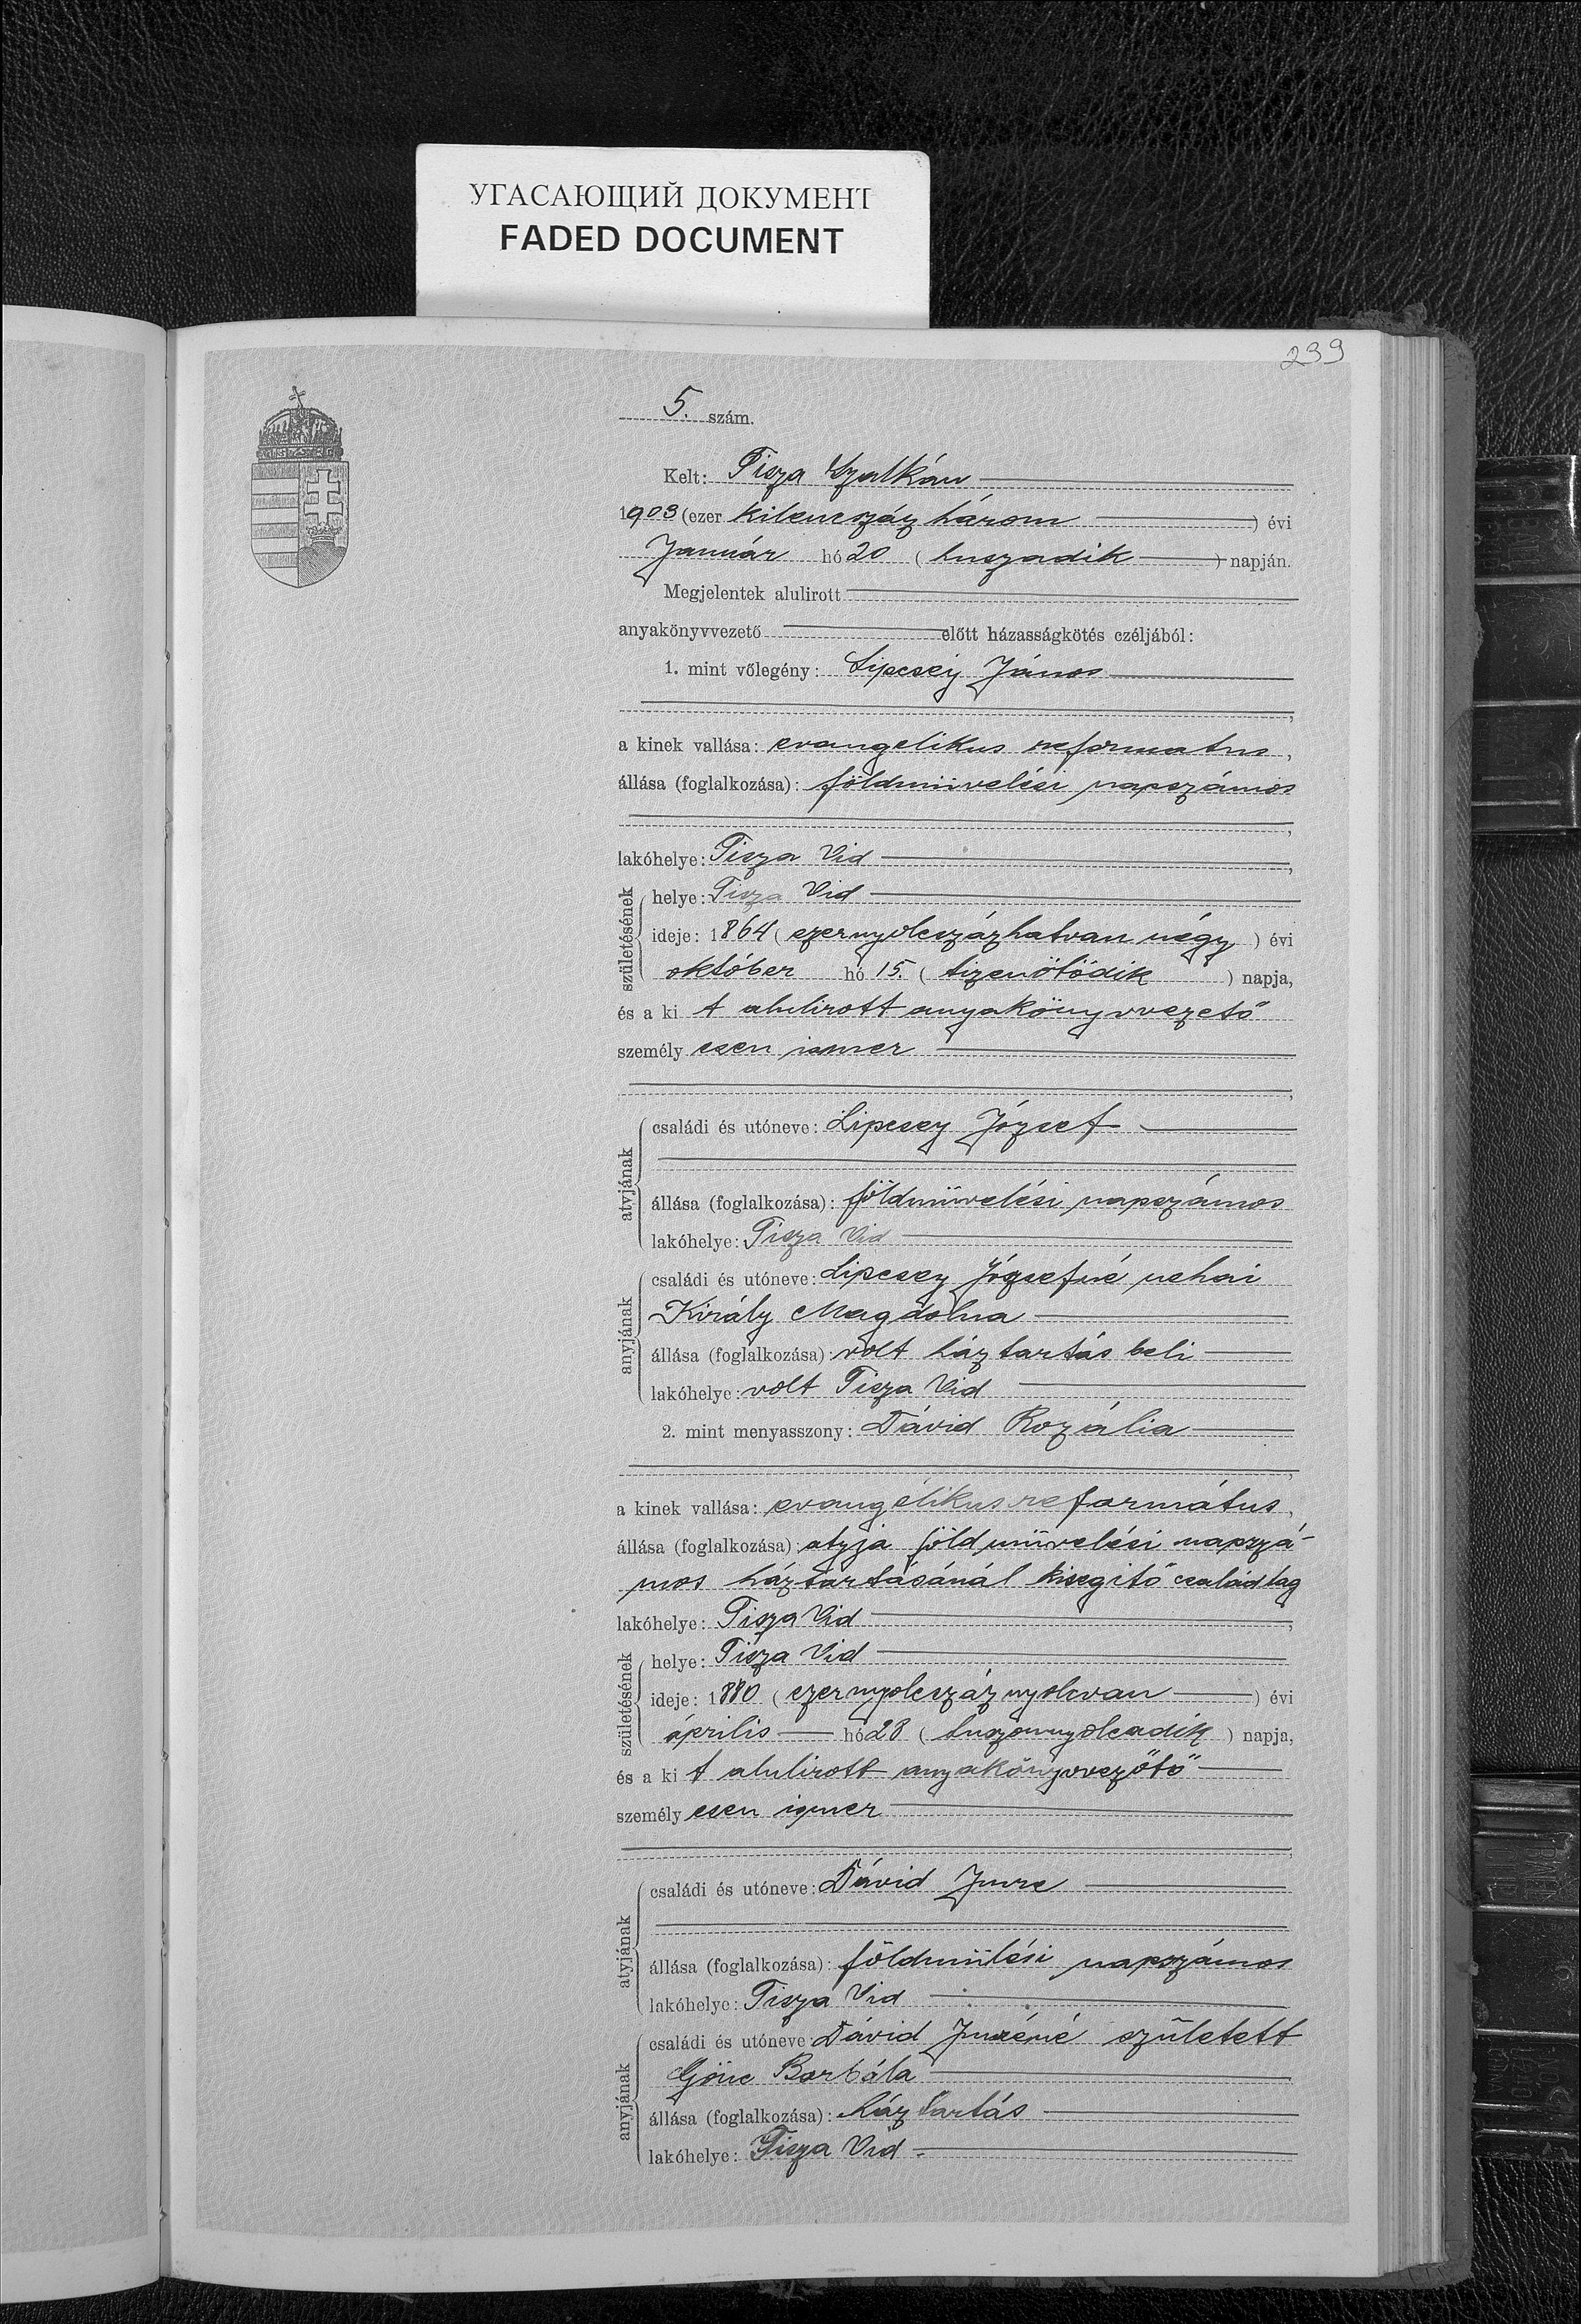 УГАСАЮЩИЙ ДОКУМЕНТ
FADED DOCUMENT
239
5. szám.
Kelt: Tisza Szalkán
1903 (ezer kilenczáz három) évi
Január hó 20 (huszadik) napján.
Megjelentek alulirott
anyakönyvvezető előtt házasságkötés czéljából:
1. mint vőlegény: Lipcsey János
a kinek vallása: evangelikus reformatus,
állása (foglalkozása): földmüvelési napszámos
lakóhelye: Tisza Vid
születésének
helye: Tisza Vid
ideje: 1864 (ezernyolcszázhatvan négy) évi
október hó 15. (tizenötödik) napja,
és a ki t alulirott anyakönyvvezető
személy esen ismer
atyjának
családi és utóneve: Lipcsey József
állása (foglalkozása): földmüvelési napszámos
lakóhelye: Tisza Vid
anyjának
családi és utóneve: Lipcsey Józsefné nehai
Király Magdolna
állása (foglalkozása): volt háztartás beli
lakóhelye: volt Tisza Vid
2. mint menyasszony: Dávid Rozália
a kinek vallása: evangélikus református,
állása (foglalkozása): atyja földmüvelési napszá-
mos háztartásánál kisegitő családtag
lakóhelye: Tisza Vid
születésének
helye: Tisza Vid
ideje: 1880 (ezernyolcszáznyolcvan) évi
április hó 28 (huszonnyolcadik) napja,
és a ki t alulirott anyakönyvvezőtő
személy esen ismer
atyjának
családi és utóneve: Dávid Imre
állása (foglalkozása): földmülési napszámos
lakóhelye: Tisza Vid
anyjának
családi és utóneve: Dávid Imréné született
Gönc Borbála
állása (foglalkozása): háztartás
lakóhelye: Tisza Vid